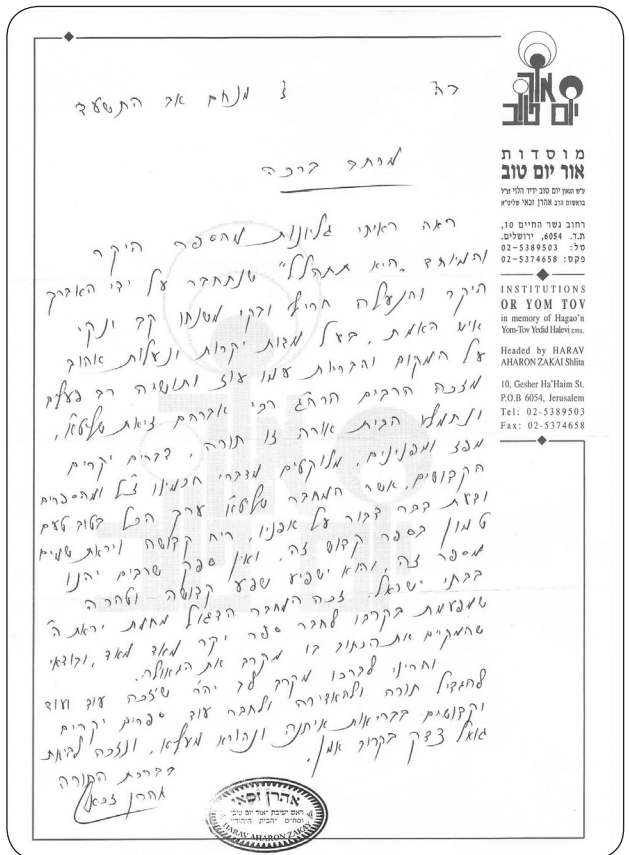 אור
יום טוב
מוסדות
אור יום טוב
ע"ש הגאון יום טוב ידיד הלוי זצ"ל
בראשות הרב אהרן זכאי שליט"א
רחוב גשר החיים 10,
ת.ד. 6054, ירושלים.
טל: 02-5389503
פקס: 02-5374658
INSTITUTIONS
OR YOM TOV
in memory of Hagao'n
Yom-Tov Yedid Halevi
Headed by HARAV
AHARON ZAKAI Shlita
10, Gesher Ha'Haim St.
P.O.B 6054, Jerusalem
Tel: 02-5389503
Fax: 02-5374658
בה' ז' מנחם אב התשע"ד
מכתב ברכה
ראה ראיתי גליונות מהספר היקר
והמיוחד "היא תתהלל" שנתחבר על ידי האברך
היקר והנעלה חריף ובקי משנתו קב ונקי
איש האמת, בעל מדות יקרות ונעלות אהוב
על המקום והבריות עמו עוז ותושיה רב פעלים
מזכה הרבים הרה"ג רבי אברהם ציאת שליט"א,
ונתמלא הבית אורה זו תורה, דברים יקרים
מפז ומפנינים, מלוקטים מדברי חכמינו ז"ל ומהספרים
הקדושים, אשר המחבר שליט"א ערך הכל בטוב טעם
ודעת דבר דבור על אפניו, ריח קדושה ויראת שמים
טמון בספר קדוש זה, ואין ספק שרבים יהנו
מספר זה, והוא ישפיע שפע קדושה וטהרה
בבתי ישראל. זכה המחבר הדגול מחמת יראת ה'
שמפעמת בקרבו לחבר ספר יקר מאד מאד, ובודאי
שהמקיים את הכתוב בו מקרב את הגאולה.
והריני לברכו מקרב לב יה"ר שיזכה עוד ועוד
להגדיל תורה ולהאדירה ולחבר עוד ספרים יקרים
וקדושים בבריאות איתנה ונהורא מעליא, ונזכה לביאת
גואל צדק בקרוב אמן.
בברכת התורה
אהרן זכאי
אהרן זכאי
ראש ישיבת "אור יום טוב"
ומח"ס "הבית היהודי"
HARAV AHARON ZAKAI